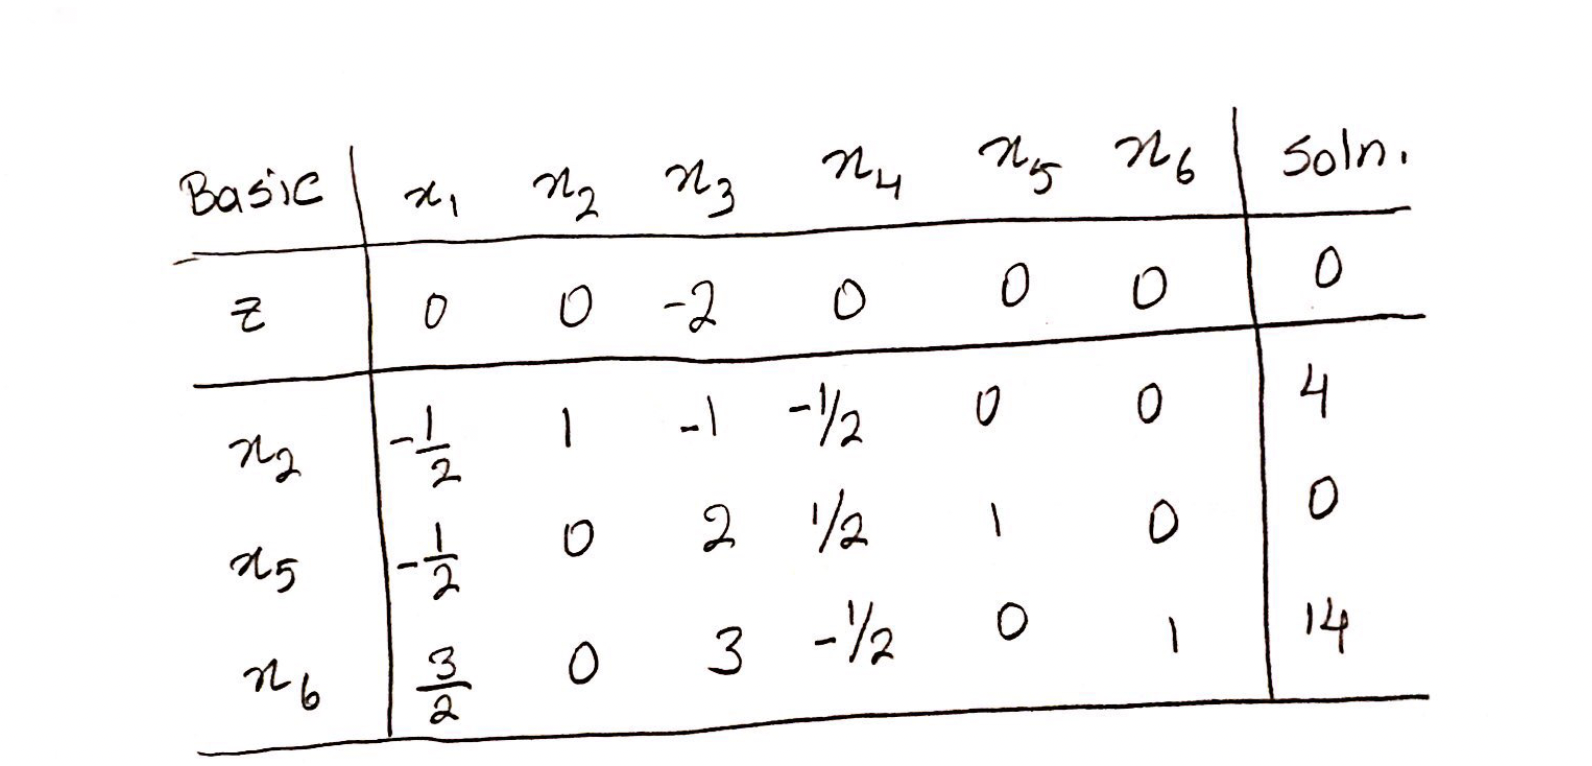 Basic x₁ x₂ x₃ x₄ x₅ x₆ Soln.
z 0 0 -2 0 0 0 0
x₂ -1/2 1 -1 -1/2 0 0 4
x₅ -1/2 0 2 1/2 1 0 0
x₆ 3/2 0 3 -1/2 0 1 14